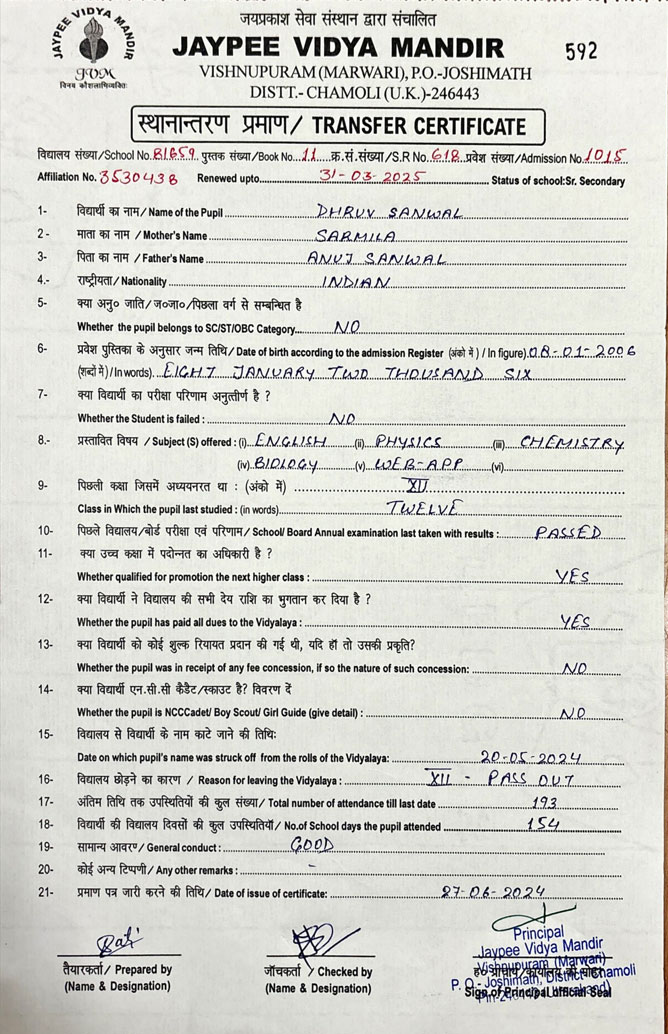 जयप्रकाश सेवा संस्थान द्वारा संचालित
JAYPEE VIDYA MANDIR
JAYPEE VIDYA MANDIR
592
JVM
विनय कौशलाभिव्यक्तिः
VISHNUPURAM (MARWARI), P.O.-JOSHIMATH
DISTT.- CHAMOLI (U.K.)-246443
स्थानान्तरण प्रमाण/ TRANSFER CERTIFICATE
विद्यालय संख्या/School No. 81659 पुस्तक संख्या/Book No. 11 क्र.सं.संख्या/S.R No. 618 प्रवेश संख्या/Admission No. 1015
Affiliation No. 3530438 Renewed upto 31-03-2025 Status of school:Sr. Secondary
1- विद्यार्थी का नाम/ Name of the Pupil DHRUV SANWAL
2 - माता का नाम / Mother's Name SARMILA
3- पिता का नाम / Father's Name ANUJ SANWAL
4.- राष्ट्रीयता/ Nationality INDIAN
5- क्या अनु० जाति/ ज०जा०/पिछला वर्ग से सम्बन्धित है
Whether the pupil belongs to SC/ST/OBC Category NO
6- प्रवेश पुस्तिका के अनुसार जन्म तिथि/ Date of birth according to the admission Register (अंको में) / In figure). 08-01-2006
(शब्दों में)/ In words). EIGHT JANUARY TWO THOUSAND SIX
7- क्या विद्यार्थी का परीक्षा परिणाम अनुत्तीर्ण है ?
Whether the Student is failed : NO
8.- प्रस्तावित विषय / Subject (S) offered : (i) ENGLISH (ii) PHYSICS (iii) CHEMISTRY
(iv) BIOLOGY (v) WEB-APP (vi)
9- पिछली कक्षा जिसमें अध्ययनरत था : (अंको में) XII
Class in Which the pupil last studied : (in words) TWELVE
10- पिछले विद्यालय/बोर्ड परीक्षा एवं परिणाम/ School/ Board Annual examination last taken with results : PASSED
11- क्या उच्च कक्षा में पदोन्नत का अधिकारी है ?
Whether qualified for promotion the next higher class : YES
12- क्या विद्यार्थी ने विद्यालय की सभी देय राशि का भुगतान कर दिया है ?
Whether the pupil has paid all dues to the Vidyalaya : YES
13- क्या विद्यार्थी को कोई शुल्क रियायत प्रदान की गई थी, यदि हाँ तो उसकी प्रकृति?
Whether the pupil was in receipt of any fee concession, if so the nature of such concession: NO
14- क्या विद्यार्थी एन.सी.सी कैडैट/स्काउट है? विवरण दें
Whether the pupil is NCCCadet/ Boy Scout/ Girl Guide (give detail) : NO
15- विद्यालय से विद्यार्थी के नाम काटे जाने की तिथि:
Date on which pupil's name was struck off from the rolls of the Vidyalaya: 20-05-2024
16- विद्यालय छोड़ने का कारण / Reason for leaving the Vidyalaya : XII - PASS OUT
17- अंतिम तिथि तक उपस्थितियों की कुल संख्या/ Total number of attendance till last date 193
18- विद्यार्थी की विद्यालय दिवसों की कुल उपस्थितियाँ/ No.of School days the pupil attended 154
19- सामान्य आवरण/ General conduct : GOOD
20- कोई अन्य टिप्पणी/ Any other remarks : -
21- प्रमाण पत्र जारी करने की तिथि/ Date of issue of certificate: 27-06-2024
Principal
Jaypee Vidya Mandir
Vishnupuram (Marwari)
P. O. - Joshimath, District Chamoli
तैयारकर्ता/ Prepared by
(Name & Designation)
जाँचकर्ता / Checked by
(Name & Designation)
Sign of Principal official Seal